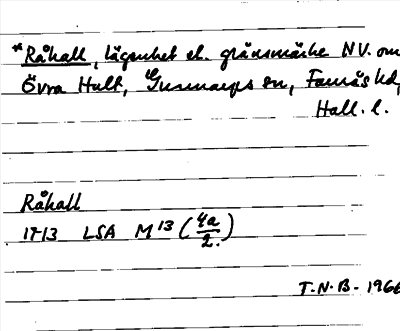 *Råhall, lägenhet el. gränsmärke NV. om
Övra Hult, Gunnarps sn, Faurås hd,
Hall. l.
Råhall
1713 LSA M 13 (4a/2.)
T.N.B - 1966